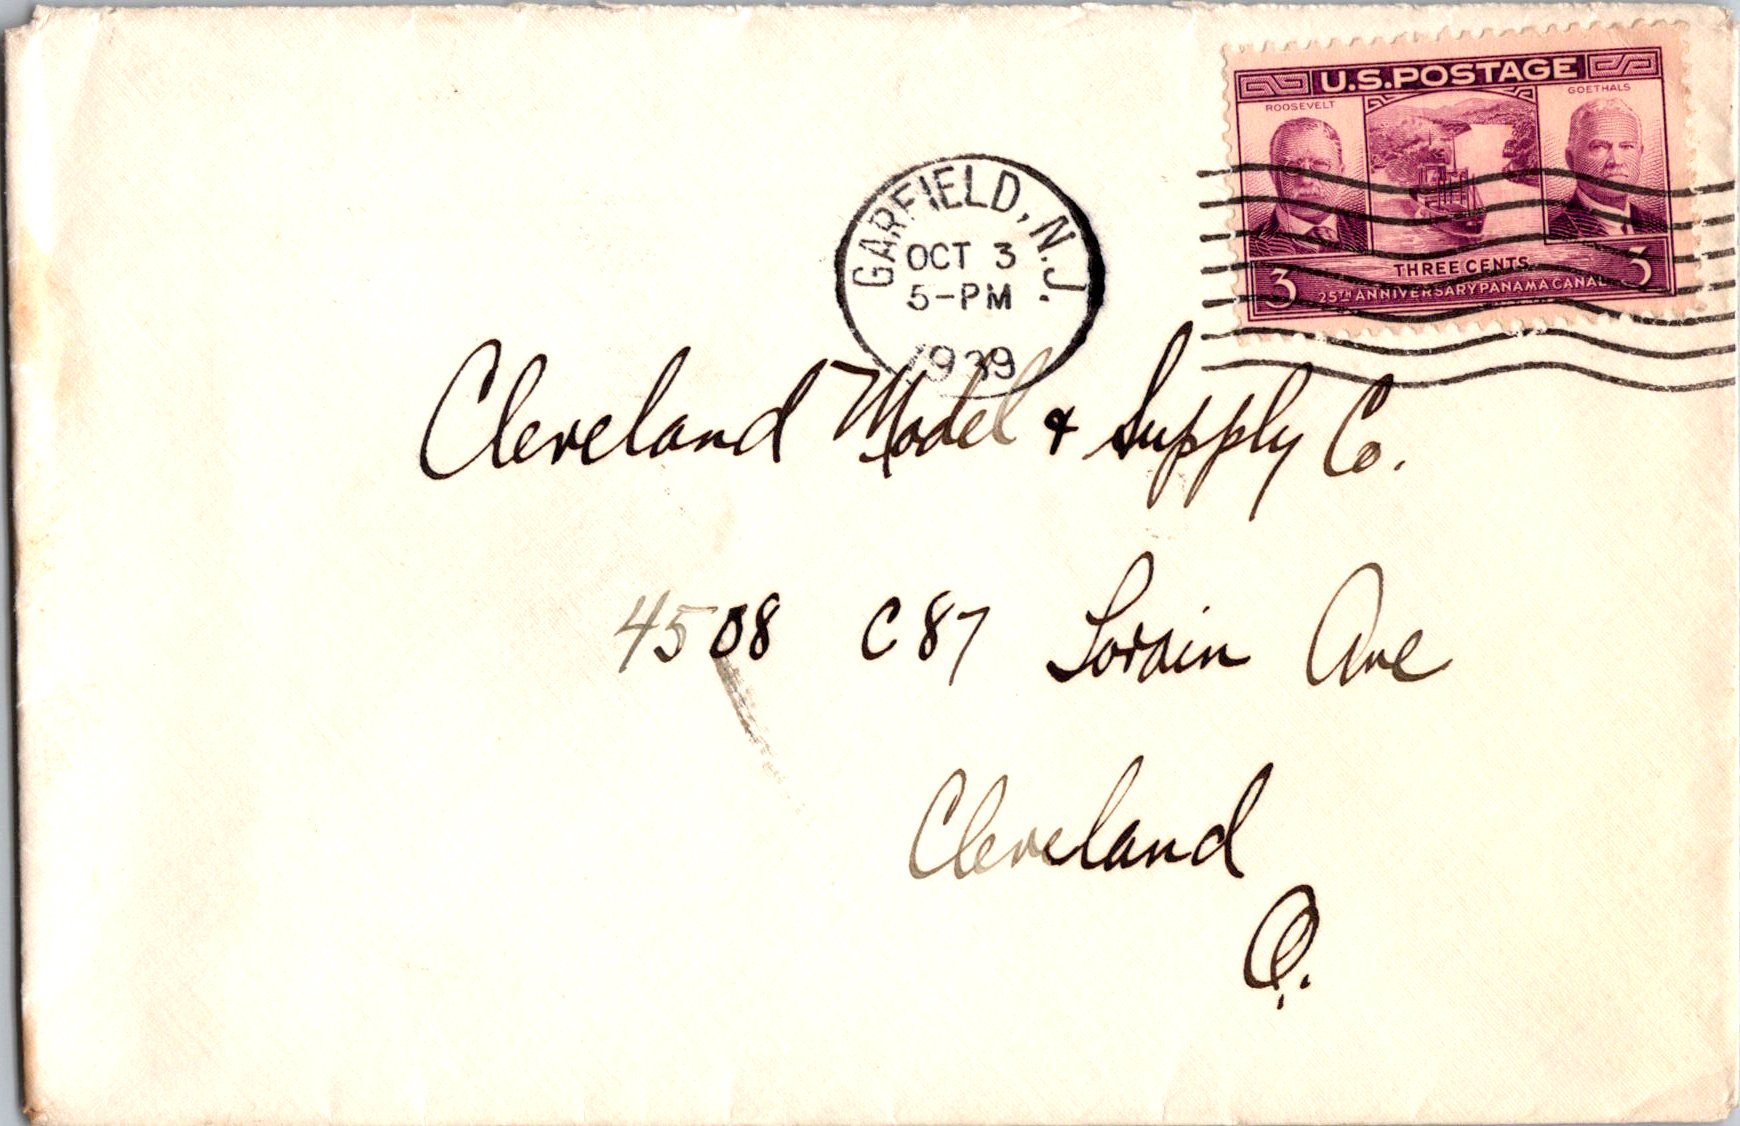 U.S.POSTAGE
ROOSEVELT
GOETHALS
THREE CENTS
3 25TH ANNIVERSARY PANAMA CANAL 3
GARFIELD, N.J.
OCT 3
5-PM
1939
Cleveland Model & Supply Co.
4508 C87 Lorain Ave
Cleveland
O.